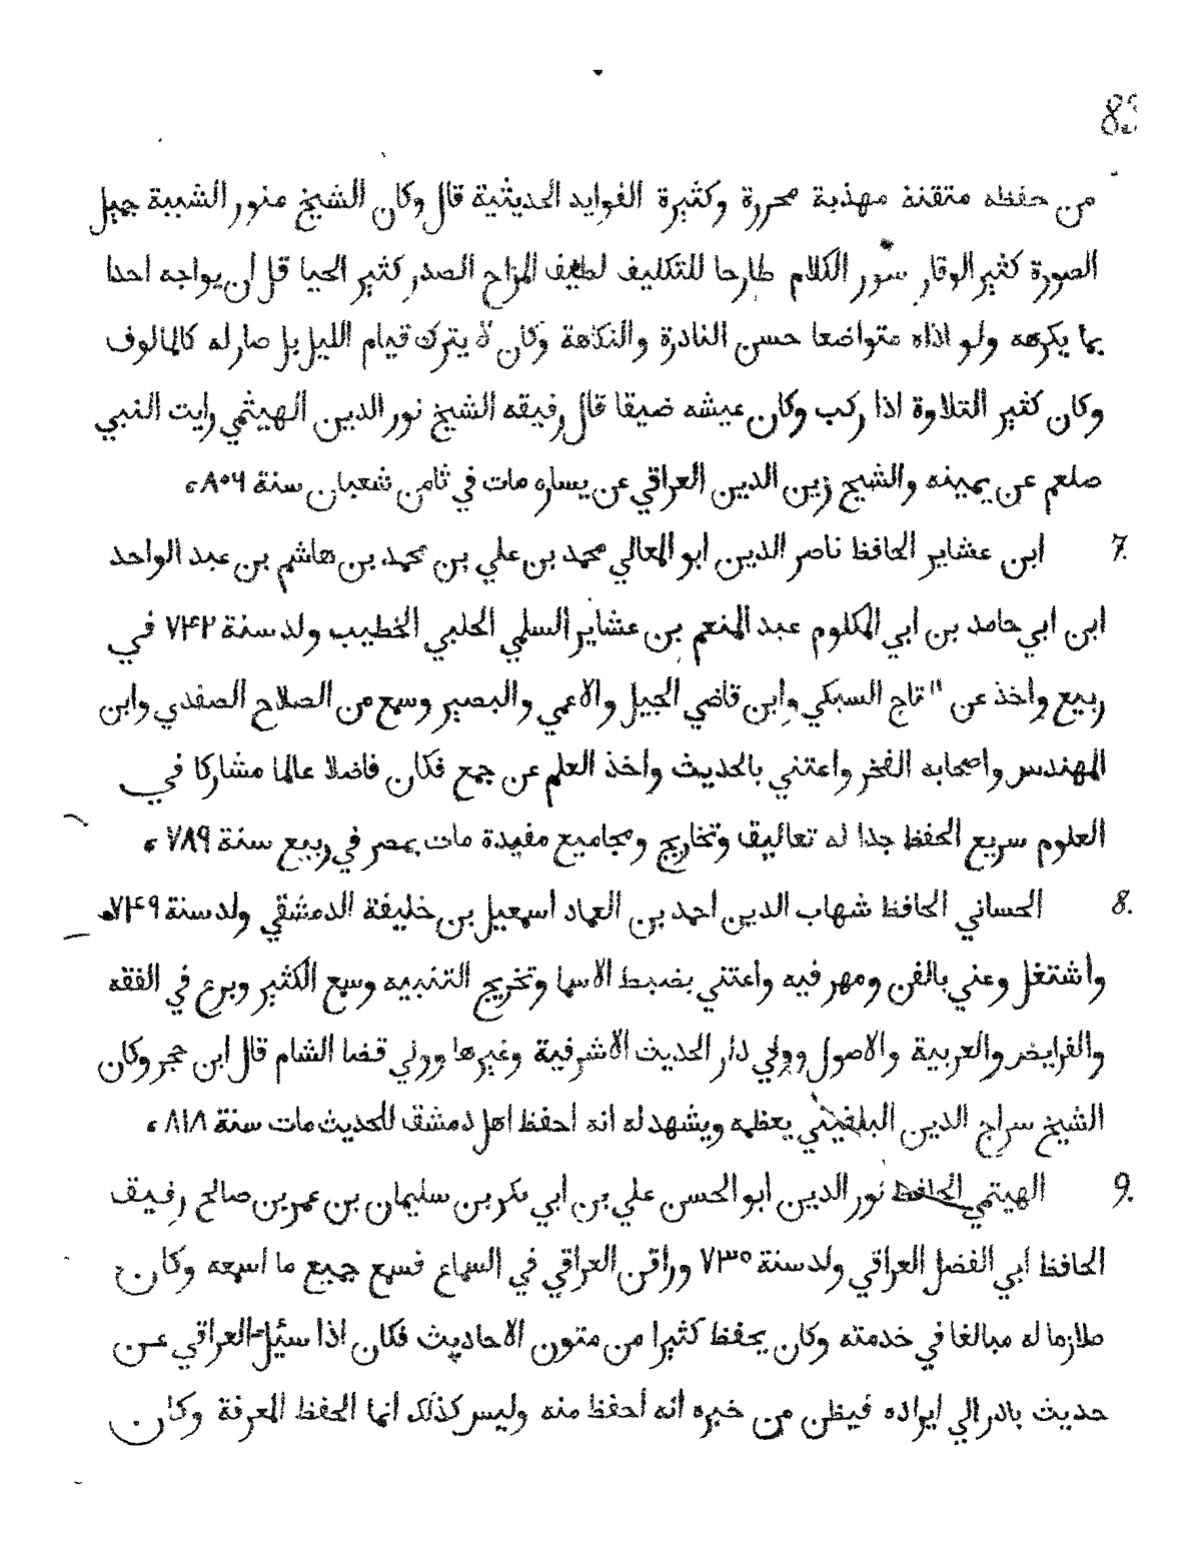 من حفظه متقنة مهذبة محررة وكثيرة الفوايد الحديثية قال وكان الشيخ منور الشيبة جميل
الصورة كثير الوقار نزر الكلام طارحا للتكليف لطيف المزاج الصدر كثير الحيا قل ان يواجه احدا
بما يكرهه ولو اذاه متواضعا حسن النادرة والنكاهة وكان لا يترك قيام الليل بل صار له كالمالوف
وكان كثير التلاوة اذا ركب وكان عيشه ضيقا قال رفيقه الشيخ نور الدين الهيثمي رايت النبي
صلعم عن يمينه والشيخ زين الدين العراقي عن يساره مات في ثامن شعبان سنة ٨٠٦،
7. ابن عشاير الحافظ ناصر الدين ابو المعالي محمد بن علي بن محمد بن هاشم بن عبد الواحد
ابن ابي حامد بن ابي المكلوم عبد المنعم بن عشاير السلمي الحلبي الخطيب ولد سنة ٧٤٢ في
ربيع واخذ عن التاج السبكي وابن قاضي الجبل والاعمي والبصير وسمع من الصلاح الصفدي وابن
المهندس واصحابه الفخر واعتني بالحديث واخذ العلم عن جمع فكان فاضلا عالما مشاركا في
العلوم سريع الحفظ جدا له تعاليق وتخاريج ومجاميع مفيدة مات بمصر في ربيع سنة ٧٨٩،
8. الحساني الحافظ شهاب الدين احمد بن العماد اسمعيل بن خليفة الدمشقي ولد سنة ٧٤٩
واشتغل وعني بالفن ومهر فيه واعتني بضبط الاسما وتخريج التنبيه وسمع الكثير وبرع في الفقه
والفرايض والعربية والاصول وولي دار الحديث الاشرفية وغيرها وولي قضا الشام قال ابن حجر وكان
الشيخ سراج الدين البلقيني يعظمه ويشهد له انه احفظ اهل دمشق للحديث مات سنة ٨١٨،
9. الهيتمي الحافظ نور الدين ابو الحسن علي بن ابي بكر بن سليمان بن عمر بن صالح رفيق
الحافظ ابي الفضل العراقي ولد سنة ٧٣٥ ورافق العراقي في السماع فسمع جميع ما اسمعه وكان
ملازما له مبالغا في خدمته وكان يحفظ كثيرا من متون الاحاديث فكان اذا سئيل العراقي عن
حديث بادر الي ايراده فيظن من خبره انه احفظ منه وليس كذلك انما الحفظ المعرفة وكان